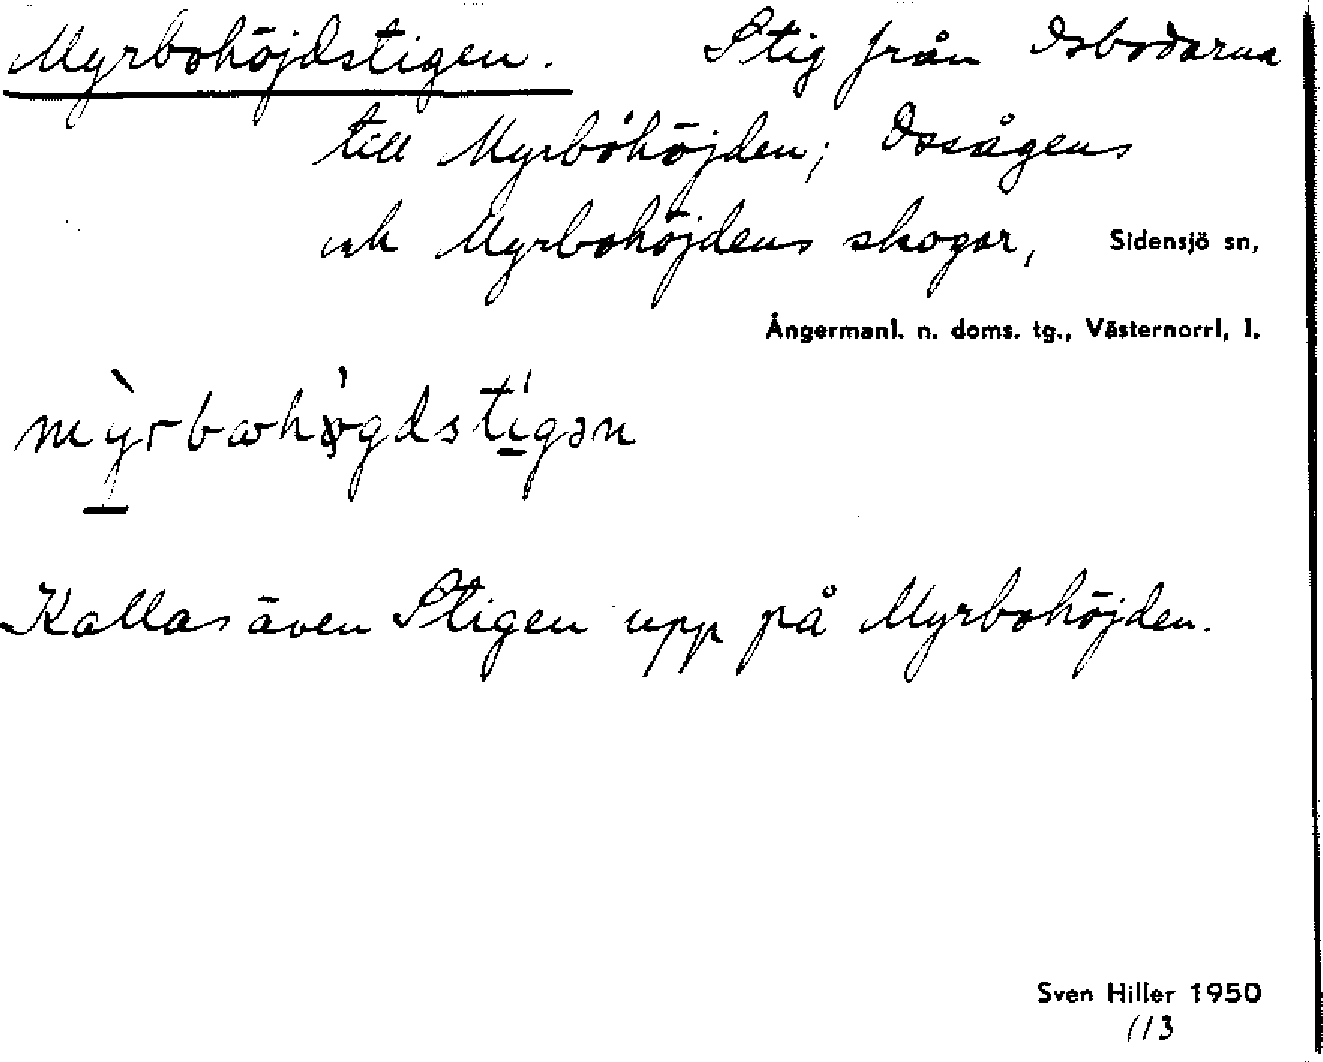 Myrbohöjdstigen. Stig från Osbodarna
till Myrbohöjden; Ossågens
och Myrbohöjdens skogar, Sidensjö sn,
Ångermanl. n. doms. tg., Västernorrl, l.
my̆̀rbωhø̀gdstígən
Kallas även Stigen upp på Myrbohöjden.
Sven Hiller 1950
113